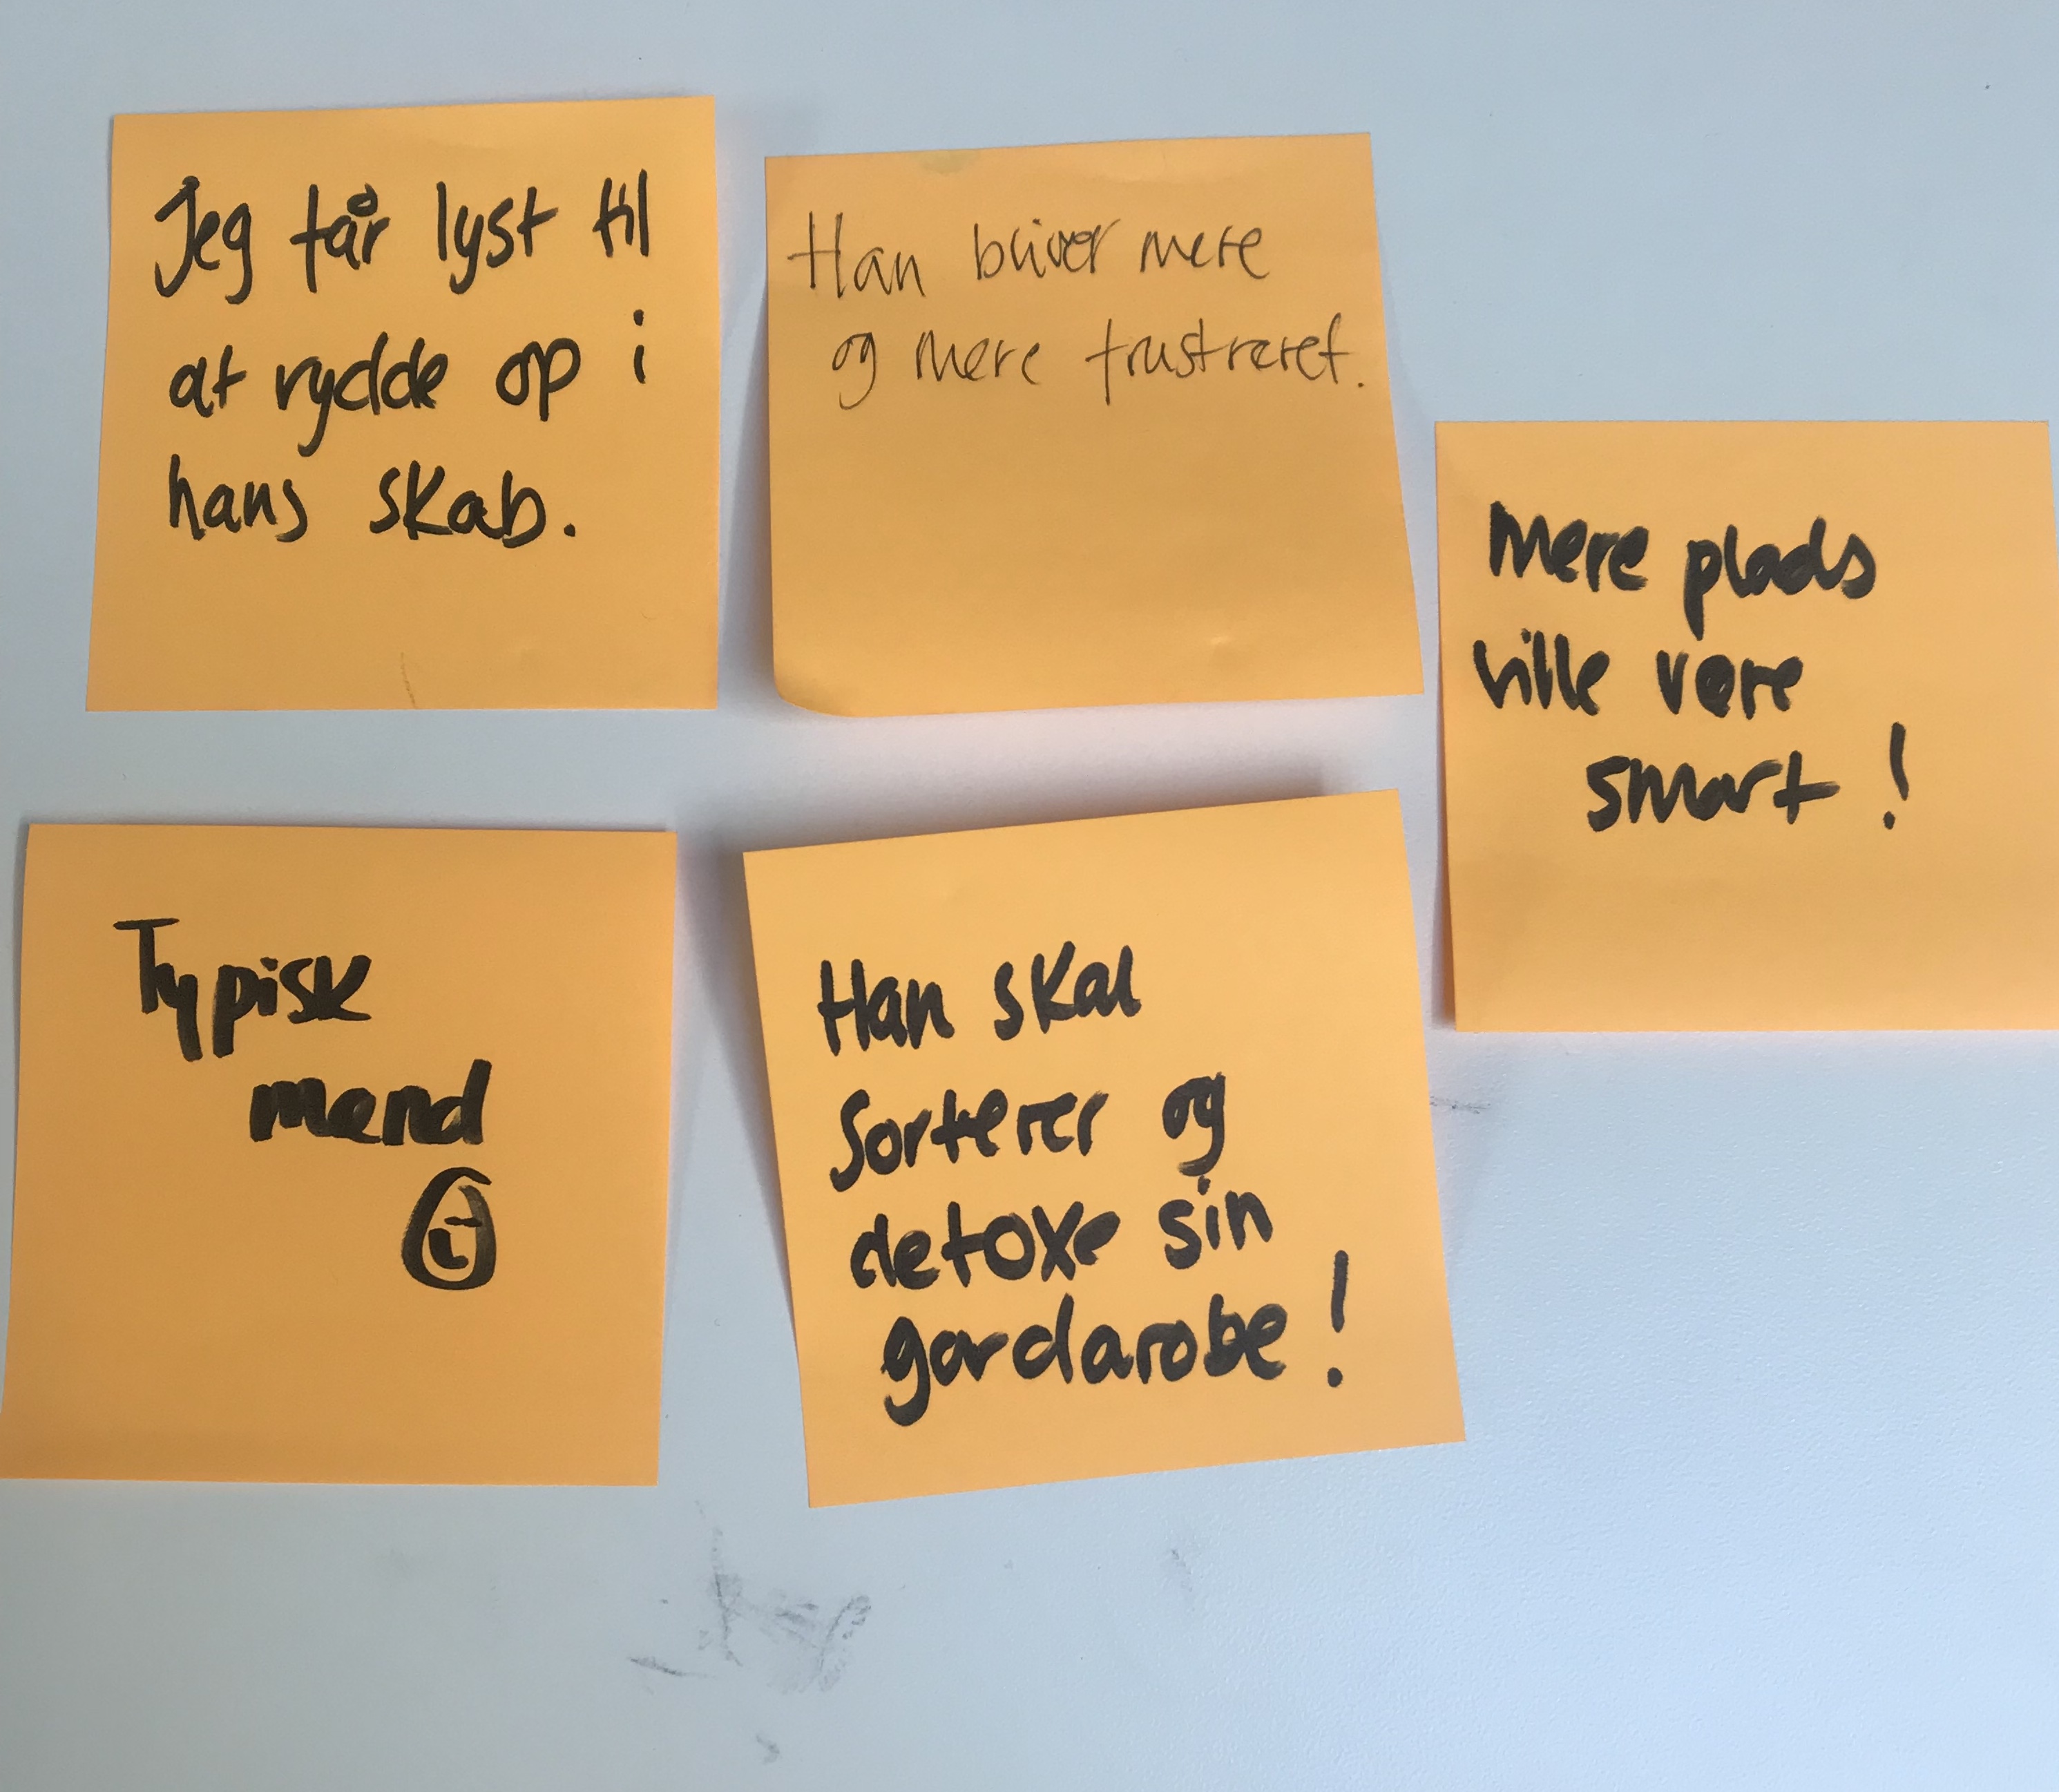 Jeg får lyst til
at rydde op i
hans skab.
Han bliver mere
og mere frustreret.
Mere plads
ville være
smart !
Typisk
mænd
Han skal
Sorterer og
detoxe sin
gardarobe !